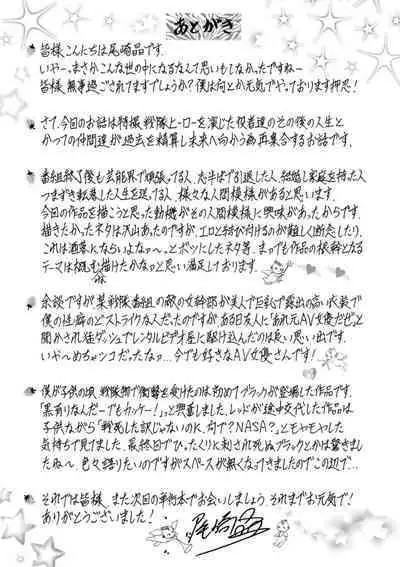 あとがき
皆様、こんにちは尾崎晶です。
いや〜、まさかこんな世の中になるなんて思いもしなかったですねー
皆様、無事過ごされてますでしょうか?僕は何とか元気でやっております押忍!
さて、今回のお話は特撮戦隊ヒーローを演じた役者達のその後の人生と
かつての仲間達が過去を精算し未来へ向かう為再集合するお話です。
番組終了後も芸能界で頑張ってる人、志半ばで引退した人、結婚し家庭を持った人
つまずき転落した人生を送ってる人、様々な人間模様があると思います。
今回の作品を描こうと思った動機がその人間模様に興味があったからです。
描きたかったネタは沢山あったのですが、エロと結び付けるのが難しく断念したり、
これは洒落にならいよなぁ〜、とボツにしたネタ等、まぁでも作品の根幹となる
テーマは概ね描けたかなっと思い満足しております。
余談ですが某戦隊番組の敵の女幹部が美人で巨乳で露出の高い衣装で
僕の性癖のどストライクな人だったのですが、ある日友人に「あれ元AV女優だぜ」と
聞かされ猛ダッシュでレンタルビデオ屋に駆け込んだのは良い思い出です。
いや〜めちゃシコだったなぁ、今でも好きなAV女優さんです!
僕が子供の頃、戦隊物で衝撃を受けたのは初めてブラックが登場した作品です。
「黒有りなんだーでもカッケー!」と興奮しました、レッドが途中交代した作品は
子供ながら「戦死した訳じゃないのに、何で?NASA?」とモヤモヤした
気持ちで見てました。最終日でひったくりに刺され死ぬブラックとかは驚きまし
たね〜 色々語りたいのですがスペースが無くなってきましたのでこの辺で…
それでは皆様、また次回の単行本でお会いしましょう、それまでお元気で!
ありがとうございました!
尾崎晶